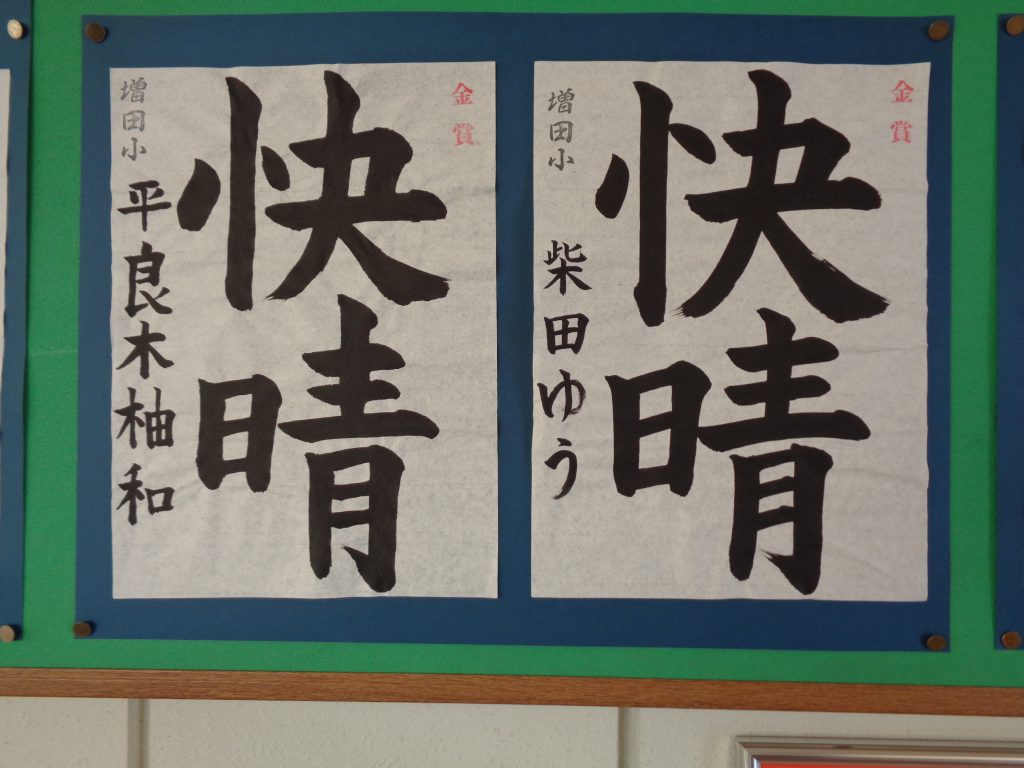 金賞
快晴
増田小 柴田ゆう
金賞
快晴
増田小 平良木柚和